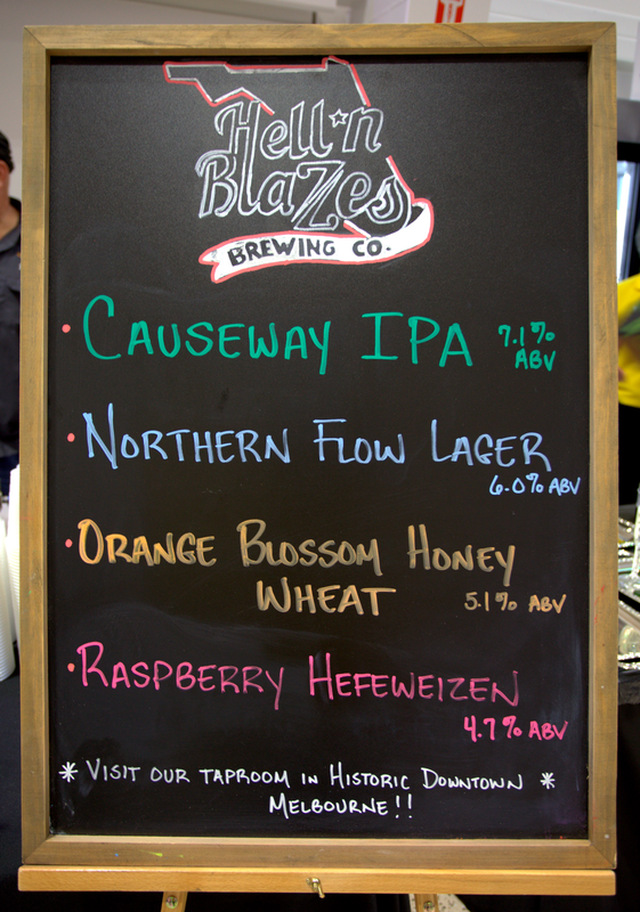 Hell*n
Blazes
BREWING CO.
• CAUSEWAY IPA 7.1%
ABV
• NORTHERN FLOW LAGER
6.0% ABV
• ORANGE BLOSSOM HONEY
WHEAT 5.1% ABV
• RASPBERRY HEFEWEIZEN
4.7% ABV
* VISIT OUR TAPROOM IN HISTORIC DOWNTOWN *
MELBOURNE!!